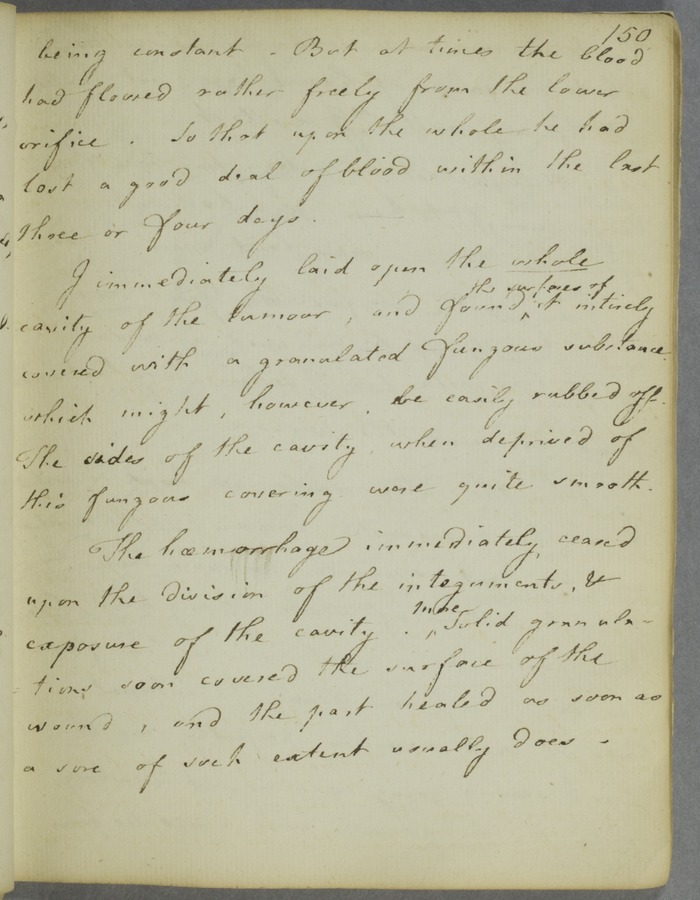 150
being constant - But at times the blood
had flowed rather freely from the lower
orifice . So that upon the whole he had
lost a good deal of blood within the last
three or four days .
I immediately laid open the whole
the surfaces of
cavity of the tumour , and found ^ it intirely
covered with a granulated fungous substance
which might , however , be easily rubbed off .
The sides of the cavity when deprived of
this fungous covering were quite smooth .
The hæmorrhage immediately ceased
upon the division of the integuments , &
more
exposure of the cavity . ^ Solid granula-
tions soon covered the surface of the
wound , and the part healed as soon as
a sore of such extent usually does -